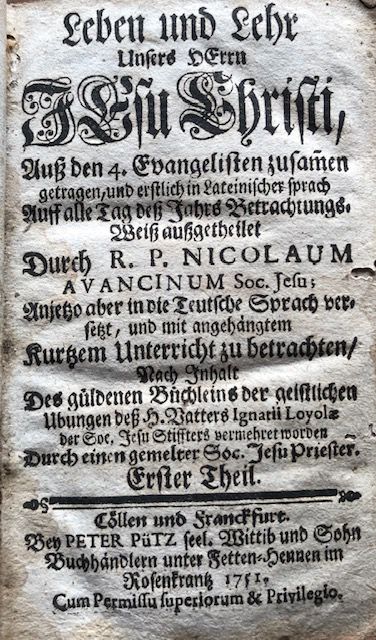 Leben und Lehr
Unsers HErrn
JEsu Christi,
Auß den 4. Evangelisten zusam̃en
getragen, und erstlich in Lateinischer sprach
Auff alle Tag deß Jahrs Betrachtungs-
Weiß außgetheilet
Durch R. P. NICOLAUM
AVANCINUM Soc. Jesu;
Anjetzo aber in die Teutsche Sprach ver-
setzt, und mit angehängtem
Kurtzem Unterricht zu betrachten/
Nach Inhalt
Des güldenen Büchleins der geistlichen
Ubungen deß H. Vatters Ignatii Loyolæ
der Soc. Jesu Stiffters vermehret worden
Durch einen gemelter Soc. Jesu Priester.
Erster Theil.
Cöllen und Franckfurt.
Bey PETER PüTZ seel. Wittib und Sohn
Buchhändlern unter Fetten-Hennen im
Rosenkrantz 1751.
Cum Permissu superiorum & Privilegio.